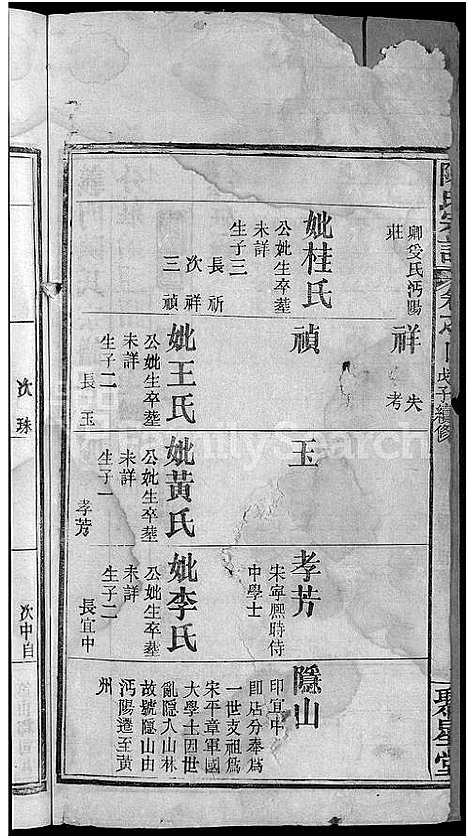 宗譜
戊子續修
聚星堂
卿受氏沔陽
莊
祥
失
考
妣桂氏
公妣生卒葬
未詳
生子三
長祈
次祥
三禎
禎
妣王氏
公妣生卒葬
未詳
生子二
長玉
次珠
玉
妣黃氏
公妣生卒葬
未詳
生子一
孝芳
孝芳
宋寧熙時侍
中學士
妣李氏
公妣生卒葬
未詳
生子二
長宜中
次中自
隱山
印宜中
即站分奉為
一世支祖為
宋平章軍國
大學士因世
亂隱入山林
故號隱山由
沔陽遷至黃
州
FamilySearch